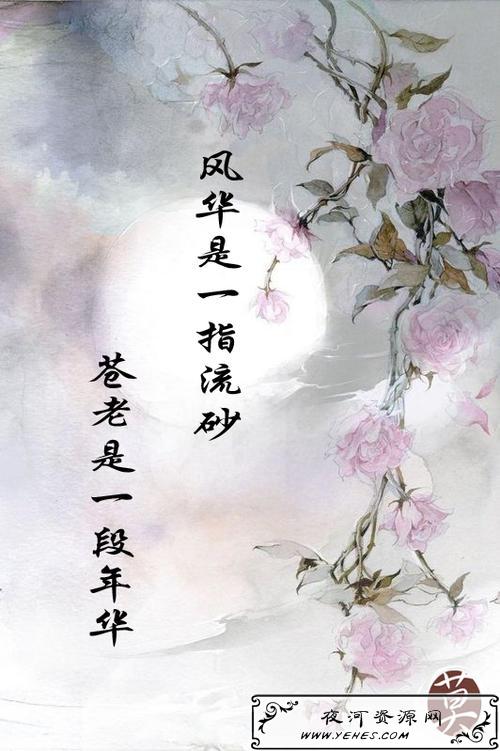 风华是一指流砂
苍老是一段年华
夜河资源网
www.YEHES.COM